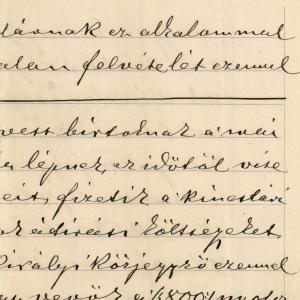 ez alkalommal
felvételét ezennel
vett birtoknak a mai
lépnek, ez időtől vise
fizetik a kincstári
átírási költségeket.
királyi közjegyző ezennel
vevők a